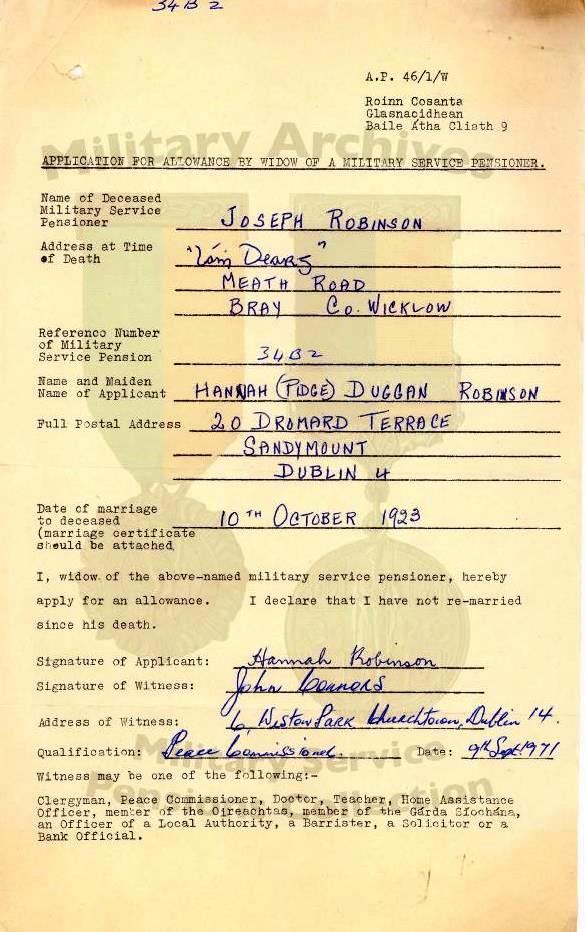 34B2
A.P. 46/1/W
Roinn Cosanta
Glasnacidhean
Baile Átha Cliath 9
Military Archives
APPLICATION FOR ALLOWANCE BY WIDOW OF A MILITARY SERVICE PENSIONER.
Name of Deceased
Military Service
Pensioner JOSEPH ROBINSON
Address at Time
of Death
MEATH ROAD
BRAY Co. WICKLOW
Reference Number
of Military
Service Pension 34B2
Name and Maiden
Name of Applicant HANNAH (PIDGE) DUGGAN ROBINSON
Full Postal Address 20 DROMARD TERRACE
SANDYMOUNT
DUBLIN 4
Date of marriage
to deceased 10TH OCTOBER 1923
(marriage certificate
should be attached.
I, widow of the above-named military service pensioner, hereby
apply for an allowance. I declare that I have not re-married
since his death.
Signature of Applicant: Hannah Robinson
Signature of Witness: John Connors
Address of Witness: 6 Weston Park Churchtown, Dublin 14.
Qualification: Peace Commissioner. Date: 9th Sept. 1971
Military Service
Pensions Collection
Witness may be one of the following:-
Clergyman, Peace Commissioner, Doctor, Teacher, Home Assistance
Officer, member of the Oireachtas, member of the Gárda Síochána,
an Officer of a Local Authority, a Barrister, a Solicitor or a
Bank Official.